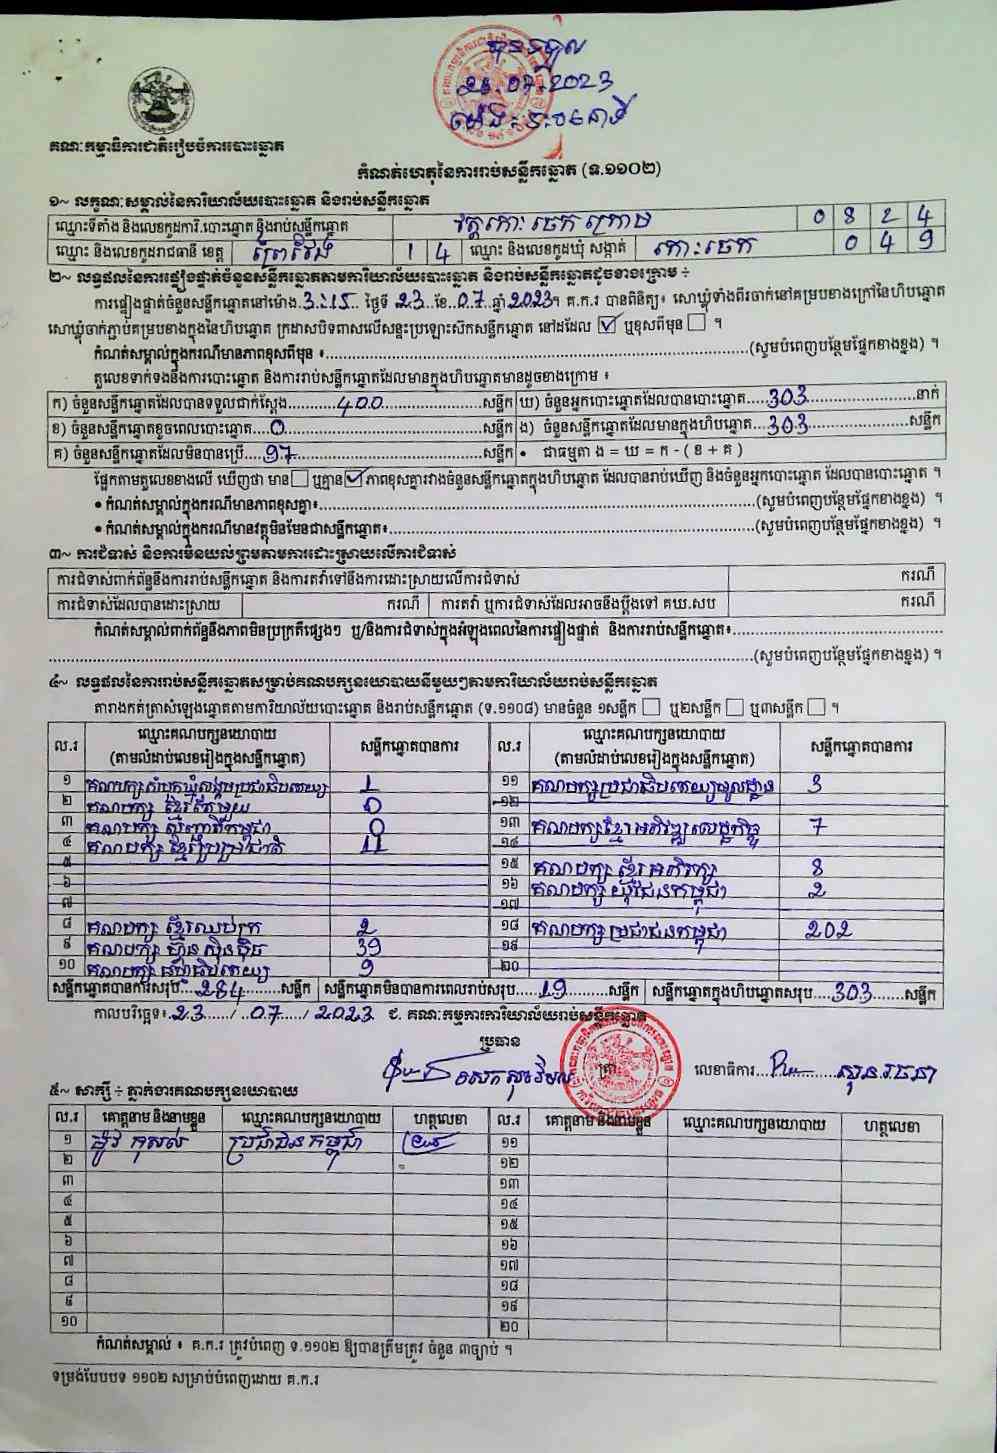 បានទទួល
23.07.2023
គណៈកម្មាធិការជាតិរៀបចំការបោះឆ្នោត
កំណត់ហេតុនៃការរាប់សន្លឹកឆ្នោត (ទ.១១០២)
១~ លក្ខណៈសម្គាល់នៃការិយាល័យបោះឆ្នោត និងរាប់សន្លឹកឆ្នោត
ឈ្មោះទីតាំង និងលេខកូដការិ.បោះឆ្នោត និងរាប់សន្លឹកឆ្នោត វត្តកោះចេក ក្រោម 0 8 2 4
ឈ្មោះ និងលេខកូដរាជធានី ខេត្ត ព្រៃវែង 1 4 ឈ្មោះ និងលេខកូដឃុំ សង្កាត់ កោះចេក 0 4 9
២~ លទ្ធផលនៃការផ្ទៀងផ្ទាត់ចំនួនសន្លឹកឆ្នោតតាមការិយាល័យបោះឆ្នោត និងរាប់សន្លឹកឆ្នោតដូចខាងក្រោម ÷
ការផ្ទៀងផ្ទាត់ចំនួនសន្លឹកឆ្នោតនៅម៉ោង 3:15 ថ្ងៃទី 23 ខែ 07 ឆ្នាំ 2023។ គ.ក.រ បានពិនិត្យ៖ សោឃ្លុំទាំងពីរចាក់នៅគម្របខាងក្រៅនៃហិបឆ្នោត
សោឃ្លុំចាក់ភ្ជាប់គម្របខាងក្នុងនៃហិបឆ្នោត ក្រដាសបិទពាសលើសន្ទះប្រឡោះស៊ីកសន្លឹកឆ្នោត នៅដដែល ☑ ឬខុសពីមុន ☐ ។
កំណត់សម្គាល់ក្នុងករណីមានភាពខុសពីមុន ៖ (សូមបំពេញបន្ថែមផ្នែកខាងខ្នង) ។
តួលេខទាក់ទងនឹងការបោះឆ្នោត និងការរាប់សន្លឹកឆ្នោតដែលមានក្នុងហិបឆ្នោតមានដូចខាងក្រោម ៖
ក) ចំនួនសន្លឹកឆ្នោតដែលបានទទួលជាក់ស្ដែង 400 សន្លឹក ឃ) ចំនួនអ្នកបោះឆ្នោតដែលបានបោះឆ្នោត 303 នាក់
ខ) ចំនួនសន្លឹកឆ្នោតខូចពេលបោះឆ្នោត 0 សន្លឹក ង) ចំនួនសន្លឹកឆ្នោតដែលមានក្នុងហិបឆ្នោត 303 សន្លឹក
គ) ចំនួនសន្លឹកឆ្នោតដែលមិនបានប្រើ 97 សន្លឹក • ជាធម្មតា ង = ឃ = ក - ( ខ + គ )
ផ្អែកតាមតួលេខខាងលើ ឃើញថា មាន ☐ ឬគ្មាន ☑ ភាពខុសគ្នារវាងចំនួនសន្លឹកឆ្នោតក្នុងហិបឆ្នោត ដែលបានរាប់ឃើញ និងចំនួនអ្នកបោះឆ្នោត ដែលបានបោះឆ្នោត ។
• កំណត់សម្គាល់ក្នុងករណីមានភាពខុសគ្នា៖ (សូមបំពេញបន្ថែមផ្នែកខាងខ្នង) ។
• កំណត់សម្គាល់ក្នុងករណីមានវត្ថុមិនមែនជាសន្លឹកឆ្នោត៖ (សូមបំពេញបន្ថែមផ្នែកខាងខ្នង) ។
៣~ ការជំទាស់ និងការមិនយល់ព្រមតាមការដោះស្រាយលើការជំទាស់
ការជំទាស់ពាក់ព័ន្ធនឹងការរាប់សន្លឹកឆ្នោត និងការតវ៉ាទៅនឹងការដោះស្រាយលើការជំទាស់ ករណី
ការជំទាស់ដែលបានដោះស្រាយ ករណី ការតវ៉ា ឬការជំទាស់ដែលអាចនឹងប្ដឹងទៅ គឃ.សប ករណី
កំណត់សម្គាល់ពាក់ព័ន្ធនឹងភាពមិនប្រក្រតីផ្សេងៗ ឬ/និងការជំទាស់ក្នុងអំឡុងពេលនៃការផ្ទៀងផ្ទាត់ និងការរាប់សន្លឹកឆ្នោត៖
(សូមបំពេញបន្ថែមផ្នែកខាងខ្នង) ។
៤~ លទ្ធផលនៃការរាប់សន្លឹកឆ្នោតសម្រាប់គណបក្សនយោបាយនីមួយៗតាមការិយាល័យរាប់សន្លឹកឆ្នោត
តារាងកត់ត្រាសំឡេងឆ្នោតតាមការិយាល័យបោះឆ្នោត និងរាប់សន្លឹកឆ្នោត (ទ.១១០៨) មានចំនួន ១សន្លឹក ☐ ឬ២សន្លឹក ☐ ឬ៣សន្លឹក ☐ ។
ល.រ ឈ្មោះគណបក្សនយោបាយ (តាមលំដាប់លេខរៀងក្នុងសន្លឹកឆ្នោត) សន្លឹកឆ្នោតបានការ ល.រ ឈ្មោះគណបក្សនយោបាយ (តាមលំដាប់លេខរៀងក្នុងសន្លឹកឆ្នោត) សន្លឹកឆ្នោតបានការ
១ គណបក្សសំបុកឃ្មុំសង្គមប្រជាធិបតេយ្យ 1 ១១ គណបក្សប្រជាធិបតេយ្យមូលដ្ឋាន 3
២ គណបក្ស ខ្មែរតែមួយ 0 ១២
៣ គណបក្ស 0 ១៣ គណបក្សខ្មែរអភិវឌ្ឍសេដ្ឋកិច្ច 7
៤ គណបក្ស ខ្មែររួបរួមជាតិ 11 ១៤
៥ ១៥ គណបក្ស ខ្មែរអភិរក្ស 8
៦ ១៦ គណបក្ស យុវជនកម្ពុជា 2
៧ ១៧
៨ គណបក្ស ខ្មែរឈប់ក្រ 2 ១៨ គណបក្សប្រជាជនកម្ពុជា 202
៩ គណបក្ស ហ៊្វុនស៊ិនប៉ិច 39 ១៩
១០ គណបក្ស ធម្មាធិបតេយ្យ 9 ២០
សន្លឹកឆ្នោតបានការសរុប 284 សន្លឹក សន្លឹកឆ្នោតមិនបានការពេលរាប់សរុប 19 សន្លឹក សន្លឹកឆ្នោតក្នុងហិបឆ្នោតសរុប 303 សន្លឹក
កាលបរិច្ឆេទ៖ 23 / 07 / 2023 ជ. គណៈកម្មការការិយាល័យរាប់សន្លឹកឆ្នោត
ប្រធាន
ត្រា លេខាធិការ
៥~ សាក្សី ÷ ភ្នាក់ងារគណបក្សនយោបាយ
ល.រ គោត្តនាម និងនាមខ្លួន ឈ្មោះគណបក្សនយោបាយ ហត្ថលេខា ល.រ គោត្តនាម និងនាមខ្លួន ឈ្មោះគណបក្សនយោបាយ ហត្ថលេខា
១ កុសល់ ប្រជាជនកម្ពុជា ១១
២ ១២
៣ ១៣
៤ ១៤
៥ ១៥
៦ ១៦
៧ ១៧
៨ ១៨
៩ ១៩
១០ ២០
កំណត់សម្គាល់ ៖ គ.ក.រ ត្រូវបំពេញ ទ.១១០២ ឱ្យបានត្រឹមត្រូវ ចំនួន ៣ច្បាប់ ។
ទម្រង់បែបបទ ១១០២ សម្រាប់បំពេញដោយ គ.ក.រ